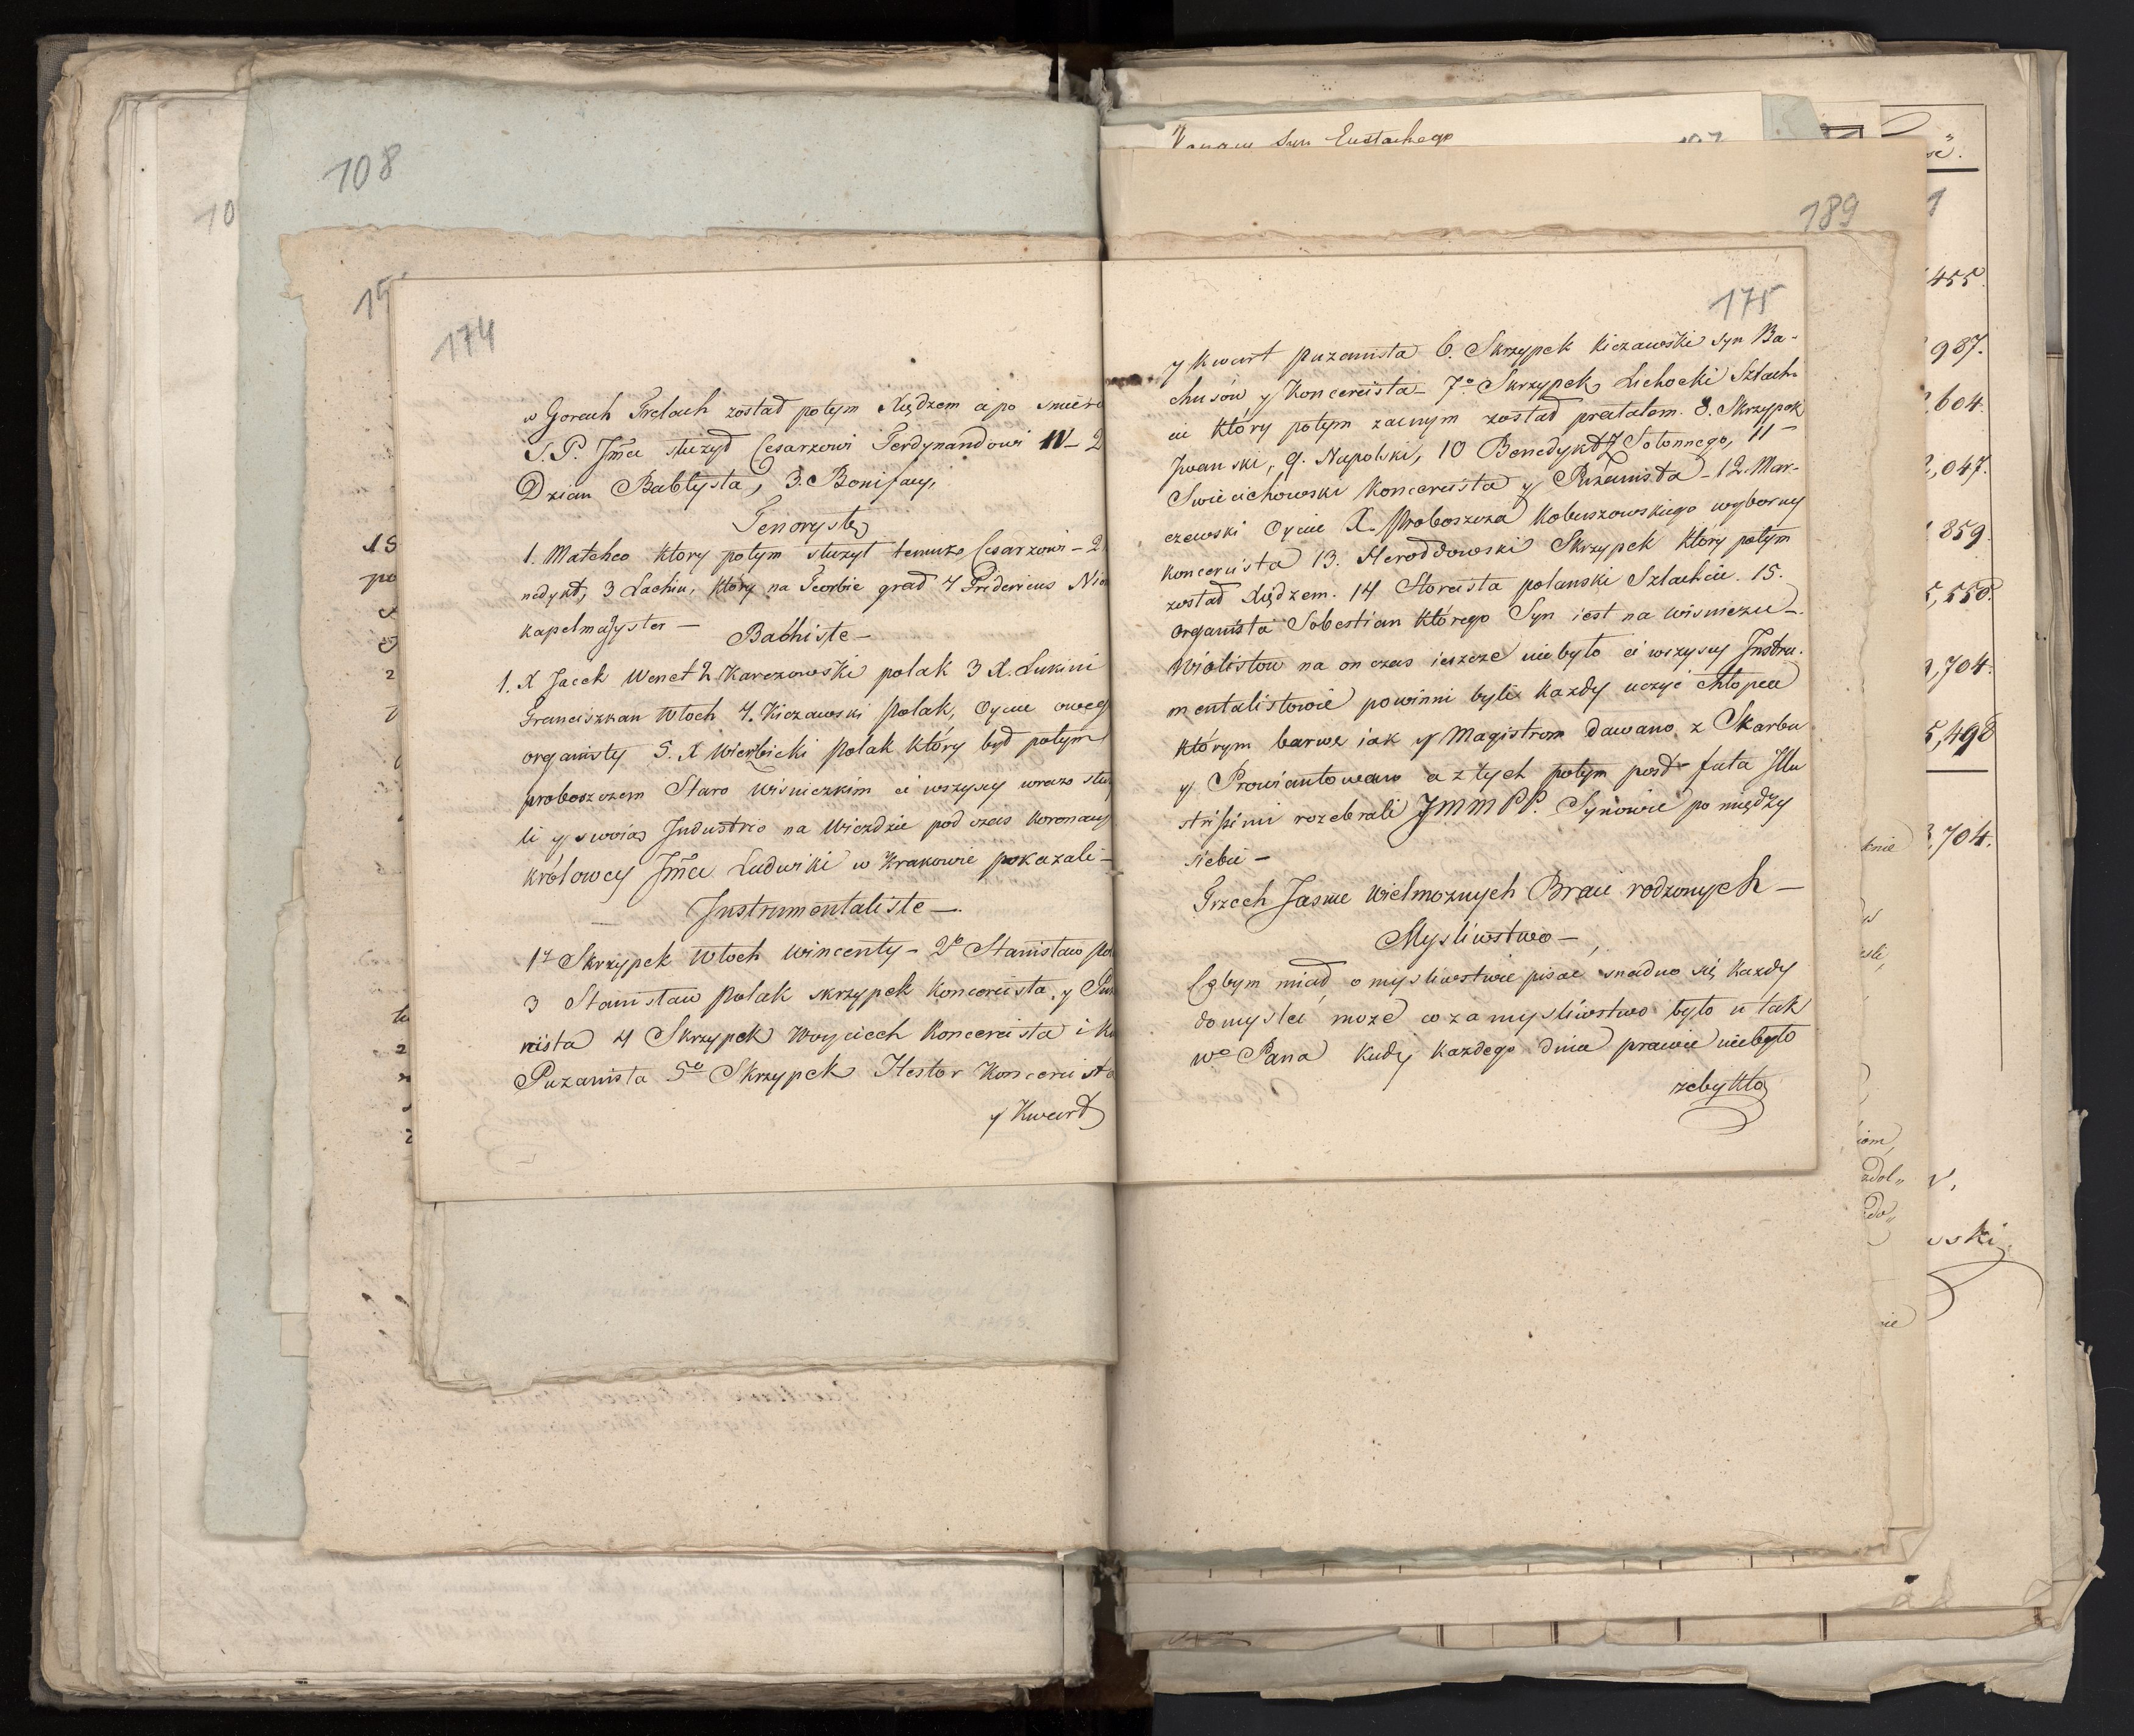 108
174
w Gorach Trelach został potym Xiędzem a po
S. P. Jmci służył Cesarzowi Ferdynandowi IV – 2
Dzian Babtysta, 3. Bonifacy,
Tenorystę
1. Matheo który potym służył temuż Cesarzowi – 2
nedykt, 3 Lachin, który na Teorbie grał 4 Fridericus
kapelmaÿster –
Bachiste –
1. X Jacek Wenet 2 Karczowski polak 3 X. Lukini
Franciszkan Włoch 4. Kiczawski polak, Oyciec
organisty 5. X Wierbicki polak który był potym
proboszczem Staro Wiśnickim ci wszyscy wraz
li y swoią Industrio na Wiezdzie pod czas
królowey Jmci Ludwiki w Krakowie pokazali –
Instrumentaliste –
1 Skrzypek Włoch Wincenty – 2do Stanisław
3 Stanisław polak skrzypek koncercista y
nista 4 Skrzypek Woyciech koncercista i
Puzanista 5to Skrzypek Hestor
y Kwart
189
175
y kwart puzanista 6. Skrzypek Kiczawski syn Ba-
chusów y Koncercista – 7o Skrzypek Lichocki Szlach-
cic który potym zacnym został prałatem. 8. Skrzypek
Jwanski, 9. Napolski, 10 Benedykt Z Solonnego, 11 –
Swiecichowski Koncercista y Puzanista – 12. Mar-
czewski Oyciec X. Proboszcza Kobuszowskiego wyborny
koncercista 13. Heroddowski Skrzypek który potym
został Xiędzem. 14 Storcista polanski Szlachcic. 15.
Organista Sobestian którego Syn iest na Wisniczu –
Wiolistow na on czas ieszcze niebyło ci wszyscy Instru-
mentalistowie powinni byli każdy uczyć chłopca
którym barwę iak y Magistrom dawano z Skarbu
y Prowiantowano a z tych potym post fata Illu
strissimi rozebrali JMM PP. Synowie pomiędzy
siebie –
Trzech Jasnie Wielmoznych Braci rodzonych –
Mysliwstwo –
Cobym miał o mysliwstwie pisac snadno się każdy
domyslei moze co za mysliwstwo było u tak
wo Pana kudy kazdego dnia prawie niebyło
zeby kto